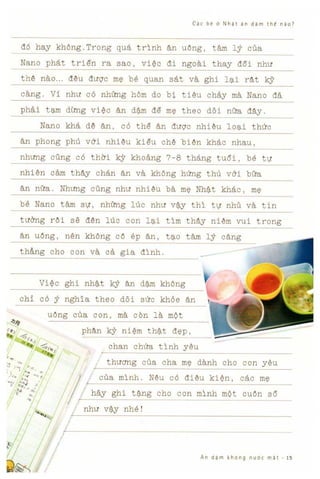 Các bé ở Nhật ăn dặm thế nào?
đó hay không.Trong quá trình ăn uống, tâm lý của
Nano phát triển ra sao, việc đi ngoài thay đổi như
thế nào... đều được mẹ bé quan sát và ghi lại rất kỹ
càng. Ví như có những hôm do bị tiêu chảy mà Nano đã
phải tạm dừng việc ăn dặm để mẹ theo dõi nữa đấy.
Nano khá dễ ăn, có thể ăn được nhiều loại thức
ăn phong phú với nhiều kiểu chế biến khác nhau,
nhưng cũng có thời kỳ khoảng 7-8 tháng tuổi, bé tự
nhiên cảm thấy chán ăn và không hứng thú với bữa
ăn nữa. Nhưng cũng như nhiều bà mẹ Nhật khác, mẹ
bé Nano tâm sự, những lúc như vậy thì tự nhủ và tin
tưởng rồi sẽ đến lúc con lại tìm thấy niềm vui trong
ăn uống, nên không cố ép ăn, tạo tâm lý căng
thẳng cho con và cả gia đình.
Việc ghi nhật ký ăn dặm không
chỉ có ý nghĩa theo dõi sức khỏe ăn
uống của con, mà còn là một
phần kỷ niệm thật đẹp,
chan chứa tình yêu
thương của cha mẹ dành cho con yêu
của mình. Nếu có điều kiện, các mẹ
hãy ghi tặng cho con mình một cuốn sổ
như vậy nhé!
Ăn dặm không nước mắt - 15